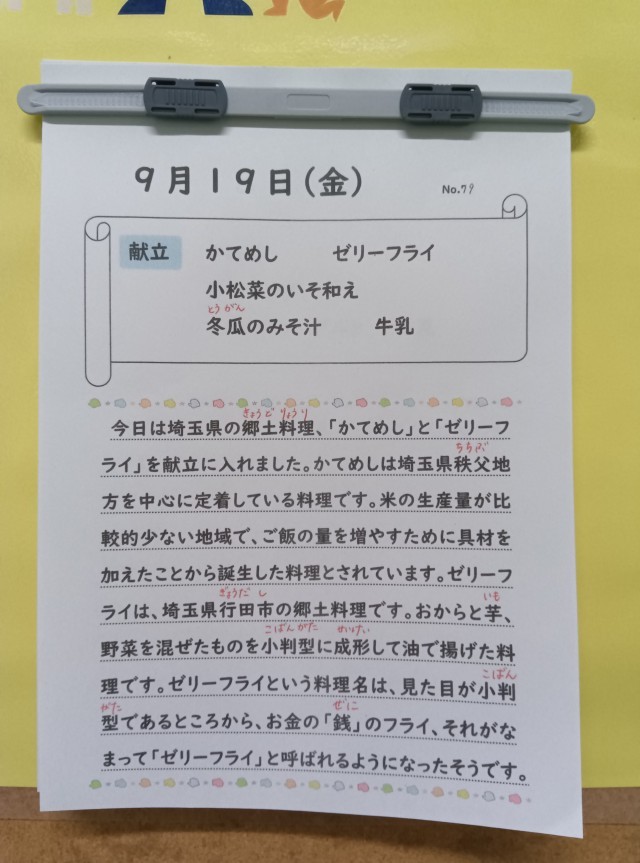 9月19日(金)
No.79
献立 かてめし ゼリーフライ
小松菜のいそ和え
とうがん
冬瓜のみそ汁 牛乳
きょうど りょうり
今日は埼玉県の郷土料理、「かてめし」と「ゼリーフ
ちちぶ
ライ」を献立に入れました。かてめしは埼玉県秩父地
方を中心に定着している料理です。米の生産量が比
較的少ない地域で、ご飯の量を増やすために具材を
加えたことから誕生した料理とされています。ゼリーフ
ぎょうだ し いも
ライは、埼玉県行田市の郷土料理です。おからと芋、
こばんがた せいけい
野菜を混ぜたものを小判型に成形して油で揚げた料
こばん
理です。ゼリーフライという料理名は、見た目が小判
がた ぜに
型であるところから、お金の「銭」のフライ、それがな
まって「ゼリーフライ」と呼ばれるようになったそうです。